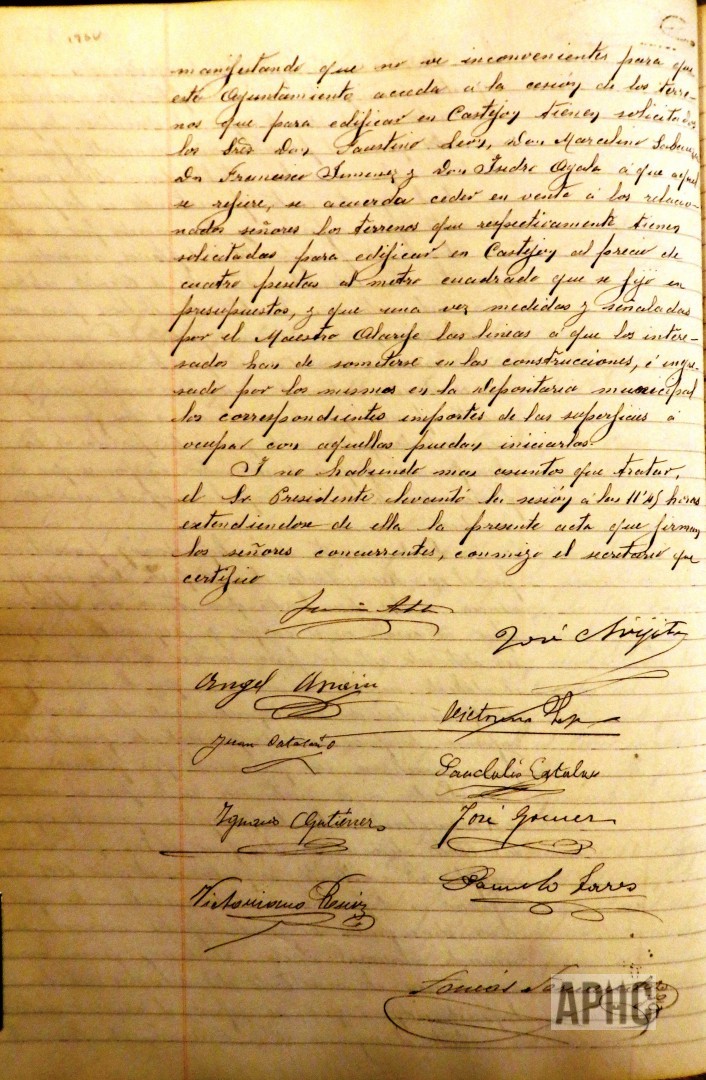 manifestando que no ve inconvenientes para que
este Ayuntamiento acceda á la cesión de los terre-
nos que para edificar en Castejon tienen solicitados
los Srēs Don Faustino León, Don Marcelino
Dn Francisco Jimenez y Don Isidro Ayala á que aquel
se refiere, se acuerda ceder en venta á los relacio-
nados señores los terrenos que respectivamente tienen
solicitadas para edificar en Castejon al precio de
cuatro pesetas al metro cuadrado que se fijó en
presupuestos, y que una vez medidas y señaladas
por el Maestro Alarife las lineas á que los intere-
sados han de someterse en las construcciones, é ingre-
sado por los mismos en la depositaria municipal
los correspondientes importes de las superficies á
ocupar con aquellas puedan iniciarlas.
Y no habiendo mas asuntos que tratar,
el Sr Presidente levantó la sesión á las 11'45 horas
extendiendose de ella la presente acta que firman
los señores concurrentes, conmigo el secretario que
certifico
José
Angel
Victorino
Juan Catalán
Sandalio Catalan
Ignacio Gutiérrez
José Gomez
Victoriano Ruiz
Torres
APHC